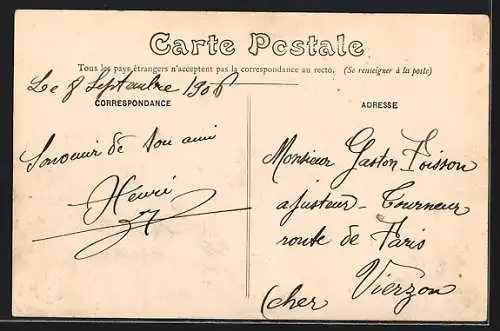 Carte Postale
Tous les pays étrangers n'acceptent pas la correspondance au recto. (Se renseigner à la poste)
Le 8 Septembre 1906
CORRESPONDANCE
ADRESSE
Souvenir de ton ami
Henri
Monsieur Gaston Poisson
ajusteur - Tourneur
route de Paris
Vierzon
(cher